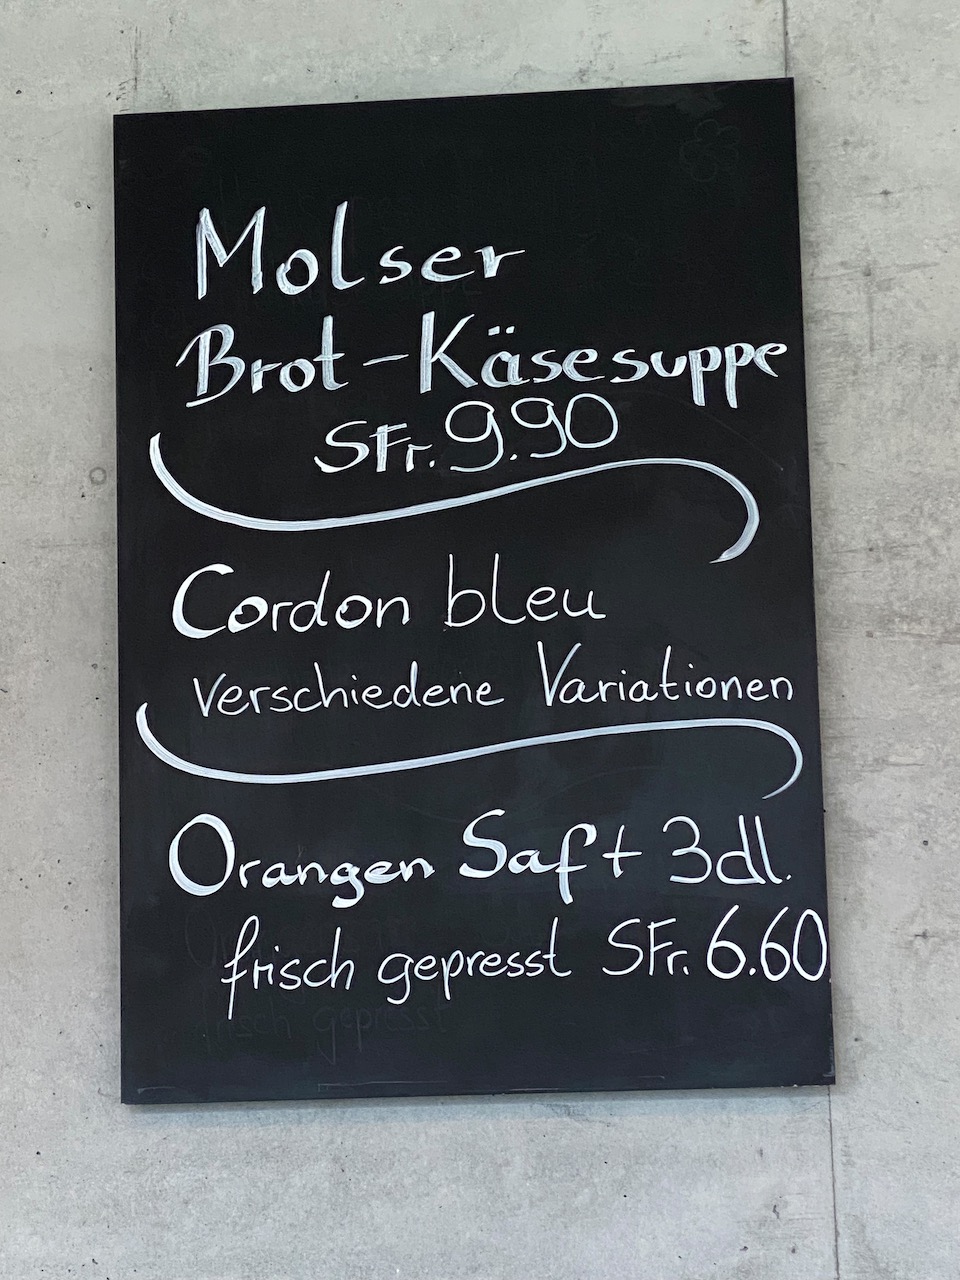 Molser
Brot-Käsesuppe
SFr. 9.90
Cordon bleu
verschiedene Variationen
Orangen Saft 3dl.
frisch gepresst SFr. 6.60